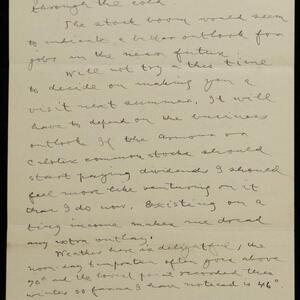 through the cold
The stock boom would seem
to indicate a better outlook for
jobs in the near future.
Will not try at this time
to decide on making you a
visit next summer. It will
have to depend on the business
outlook. If the Armour or
Celotex common stocks should
start paying dividends I should
feel more like venturing on it
than I do now. Existing on a
tiny income makes me dread
any extra outlay.
Weather here is delightful, the
noon-day temperature often goes above
70° and the lowest point recorded this
winter so far as I have noticed is 46°